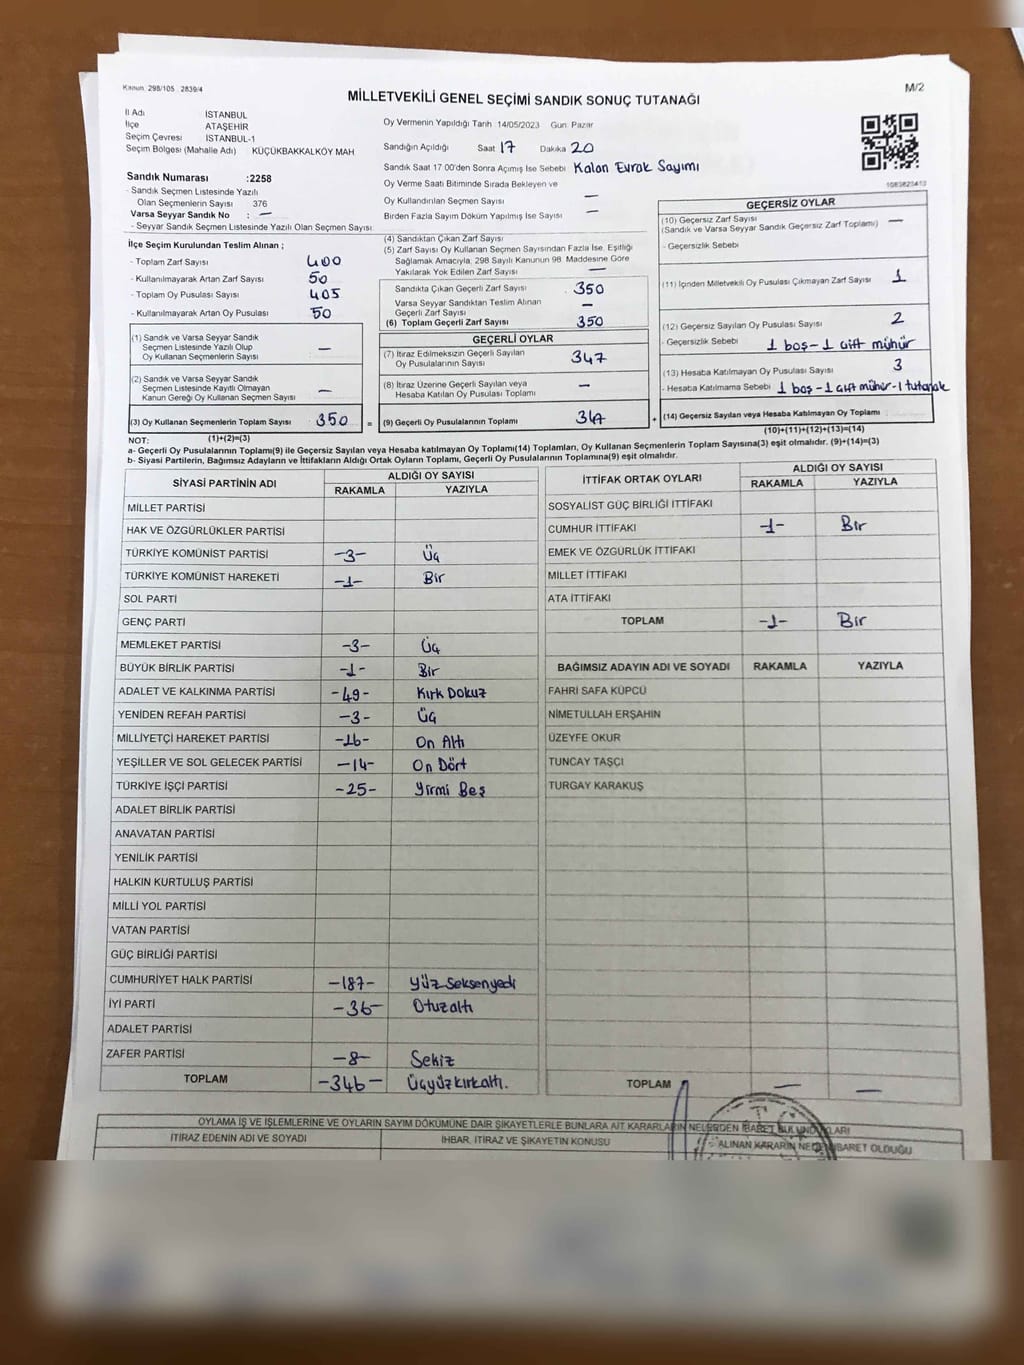 Kanun 298/105 2839/4
M/2
MİLLETVEKİLİ GENEL SEÇİMİ SANDIK SONUÇ TUTANAĞI
İl Adı İSTANBUL
İlçe ATAŞEHİR
Seçim Çevresi İSTANBUL-1
Seçim Bölgesi (Mahalle Adı) KÜÇÜKBAKKALKÖY MAH
Sandık Numarası :2258
- Sandık Seçmen Listesinde Yazılı
Olan Seçmenlerin Sayısı 376
Varsa Seyyar Sandık No : —
- Seyyar Sandık Seçmen Listesinde Yazılı Olan Seçmen Sayısı:
İlçe Seçim Kurulundan Teslim Alınan ;
- Toplam Zarf Sayısı 400
- Kullanılmayarak Artan Zarf Sayısı 50
- Toplam Oy Pusulası Sayısı 405
- Kullanılmayarak Artan Oy Pusulası 50
(1) Sandık ve Varsa Seyyar Sandık
Seçmen Listesinde Yazılı Olup —
Oy Kullanan Seçmenlerin Sayısı
(2) Sandık ve Varsa Seyyar Sandık
Seçmen Listesinde Kayıtlı Olmayan —
Kanun Gereği Oy Kullanan Seçmen Sayısı
(3) Oy Kullanan Seçmenlerin Toplam Sayısı 350 =
(1)+(2)=(3)
Oy Vermenin Yapıldığı Tarih 14/05/2023 Gün: Pazar
Sandığın Açıldığı Saat 17 Dakika 20
Sandık Saat 17 00'den Sonra Açılmış İse Sebebi Kalan Evrak Sayımı
Oy Verme Saati Bitiminde Sırada Bekleyen ve
Oy Kullandırılan Seçmen Sayısı —
Birden Fazla Sayım Döküm Yapılmış İse Sayısı —
(4) Sandıktan Çıkan Zarf Sayısı
(5) Zarf Sayısı Oy Kullanan Seçmen Sayısından Fazla İse, Eşitliği
Sağlamak Amacıyla; 298 Sayılı Kanunun 98. Maddesine Göre
Yakılarak Yok Edilen Zarf Sayısı —
Sandıkta Çıkan Geçerli Zarf Sayısı 350
Varsa Seyyar Sandıktan Teslim Alınan
Geçerli Zarf Sayısı —
(6) Toplam Geçerli Zarf Sayısı 350
GEÇERLİ OYLAR
(7) İtiraz Edilmeksizin Geçerli Sayılan
Oy Pusulalarının Sayısı 347
(8) İtiraz Üzerine Geçerli Sayılan veya
Hesaba Katılan Oy Pusulası Toplamı —
(9) Geçerli Oy Pusulalarının Toplamı 347 +
1083623413
GEÇERSİZ OYLAR
(10) Geçersiz Zarf Sayısı —
(Sandık ve Varsa Seyyar Sandık Geçersiz Zarf Toplamı)
- Geçersizlik Sebebi
(11) İçinden Milletvekili Oy Pusulası Çıkmayan Zarf Sayısı 1
(12) Geçersiz Sayılan Oy Pusulası Sayısı 2
- Geçersizlik Sebebi 1 boş-1 çift mühür
(13) Hesaba Katılmayan Oy Pusulası Sayısı 3
- Hesaba Katılmama Sebebi 1 boş-1 çift mühür-1 tutanak
(14) Geçersiz Sayılan veya Hesaba Katılmayan Oy Toplamı
(10)+(11)+(12)+(13)=(14)
NOT:
a- Geçerli Oy Pusulalarının Toplamı(9) ile Geçersiz Sayılan veya Hesaba katılmayan Oy Toplamı(14) Toplamları, Oy Kullanan Seçmenlerin Toplam Sayısına(3) eşit olmalıdır. (9)+(14)=(3)
b- Siyasi Partilerin, Bağımsız Adayların ve İttifakların Aldığı Ortak Oyların Toplamı, Geçerli Oy Pusulalarının Toplamına(9) eşit olmalıdır.
SİYASİ PARTİNİN ADI ALDIĞI OY SAYISI
RAKAMLA YAZIYLA
MİLLET PARTİSİ
HAK VE ÖZGÜRLÜKLER PARTİSİ
TÜRKİYE KOMÜNİST PARTİSİ -3- Üç
TÜRKİYE KOMÜNİST HAREKETİ -1- Bir
SOL PARTİ
GENÇ PARTİ
MEMLEKET PARTİSİ -3- Üç
BÜYÜK BİRLİK PARTİSİ -1- Bir
ADALET VE KALKINMA PARTİSİ -49- Kırk Dokuz
YENİDEN REFAH PARTİSİ -3- Üç
MİLLİYETÇİ HAREKET PARTİSİ -16- On Altı
YEŞİLLER VE SOL GELECEK PARTİSİ -14- On Dört
TÜRKİYE İŞÇİ PARTİSİ -25- Yirmi Beş
ADALET BİRLİK PARTİSİ
ANAVATAN PARTİSİ
YENİLİK PARTİSİ
HALKIN KURTULUŞ PARTİSİ
MİLLİ YOL PARTİSİ
VATAN PARTİSİ
GÜÇ BİRLİĞİ PARTİSİ
CUMHURİYET HALK PARTİSİ -187- Yüz Seksenyedi
İYİ PARTİ -36- Otuzaltı
ADALET PARTİSİ
ZAFER PARTİSİ -8- Sekiz
TOPLAM -346- Üçyüzkırkaltı.
İTTİFAK ORTAK OYLARI ALDIĞI OY SAYISI
RAKAMLA YAZIYLA
SOSYALİST GÜÇ BİRLİĞİ İTTİFAKI
CUMHUR İTTİFAKI -1- Bir
EMEK VE ÖZGÜRLÜK İTTİFAKI
MİLLET İTTİFAKI
ATA İTTİFAKI
TOPLAM -1- Bir
BAĞIMSIZ ADAYIN ADI VE SOYADI RAKAMLA YAZIYLA
FAHRİ SAFA KÜPCÜ
NİMETULLAH ERŞAHIN
ÜZEYFE OKUR
TUNCAY TAŞÇI
TURGAY KARAKUŞ
TOPLAM — —
OYLAMA İŞ VE İŞLEMLERİNE VE OYLARIN SAYIM DÖKÜMÜNE DAİR ŞİKAYETLERLE BUNLARA AİT KARARLARIN NELERDEN İBARET BULUNDUKLARI
İTİRAZ EDENİN ADI VE SOYADI İHBAR, İTİRAZ VE ŞİKAYETİN KONUSU ALINAN KARARIN NEDEN İBARET OLDUĞU